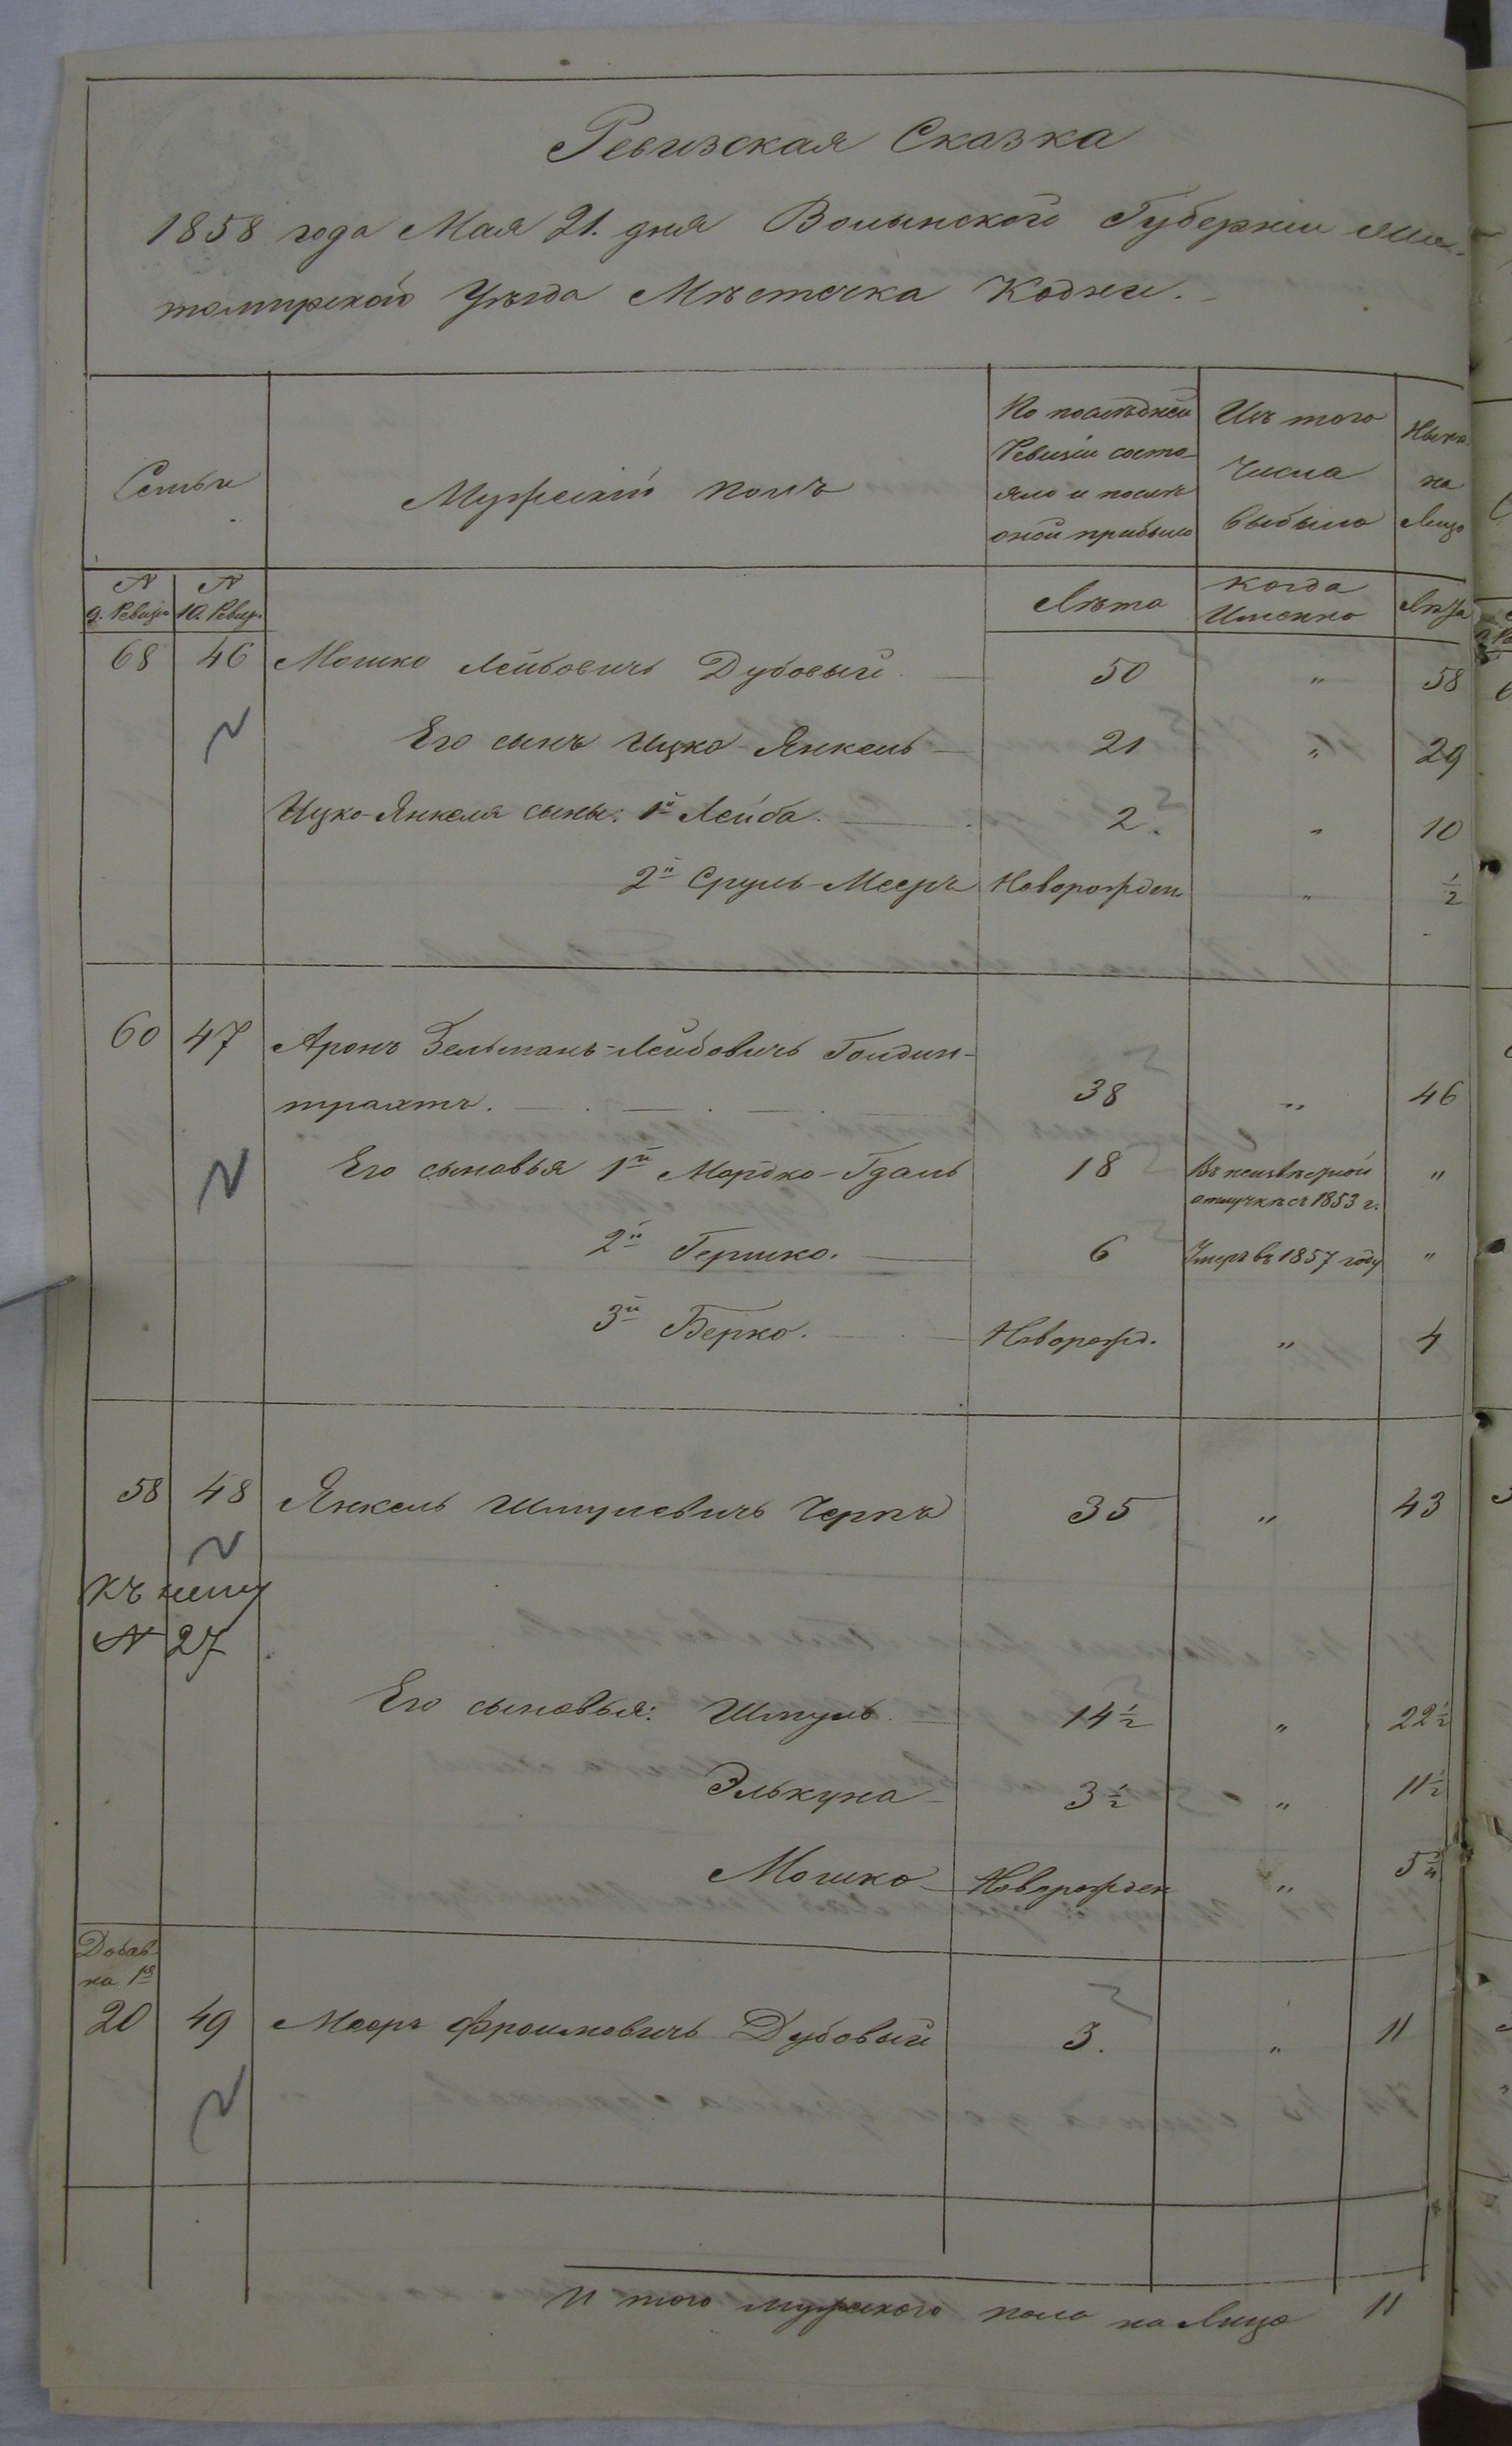 Ревизская Сказка
1858 года Мая 21. дня Волынской Губерніи Жи-
томирскаго Уѣзда Мѣстечка Кодни.
Семьи
Мужескій полъ
По послѣдней
Ревизіи состо-
яло и послѣ
оной прибыло
Изъ того
числа
выбыло
Нынѣ
на
лицо
N
9. Ревиз.
N
10. Ревиз.
Лѣта
когда
Именно
Лѣта
68 46 Мошко Лейбовичъ Дубовый 50 " 58
Его сынъ Ицко-Янкель 21 " 29
Ицко-Янкеля сыны: 1й Лейба. 2. " 10
2й Сруль-Мееръ Новорожден. " ½
60 47 Аронъ Зельманъ-Лейбовичъ Голдин-
трахтъ. 38 " 46
Его сыновья 1й Мордко-Гдаль 18 Въ неизвѣстной "
отлучкѣ съ 1853 г.
2й Гершко. 6 Умеръ въ 1857 году "
3й Берко. Новорожд. " 4
58 48 Янкель Шмулевичъ Чернъ 35 " 43
Къ нему
N 27
Его сыновья: Шмуль 14½ " 22½
Элькуна 3½ " 11½
Мошко Новорожден "
Добав.
на 1й
20 49 Мееръ Фроимовичъ Дубовый 3. " 11
И того мужескаго пола на лицо 11